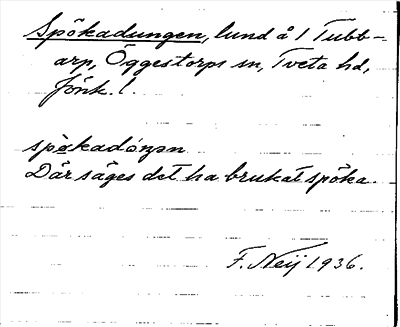 Spökadungen, lund å 1 Tubb-
arp, Öggestorps sn, Tveta hd,
Jönk. l.
spökadóŋən
Där säges det ha brukat spöka.
F. Neij 1936.